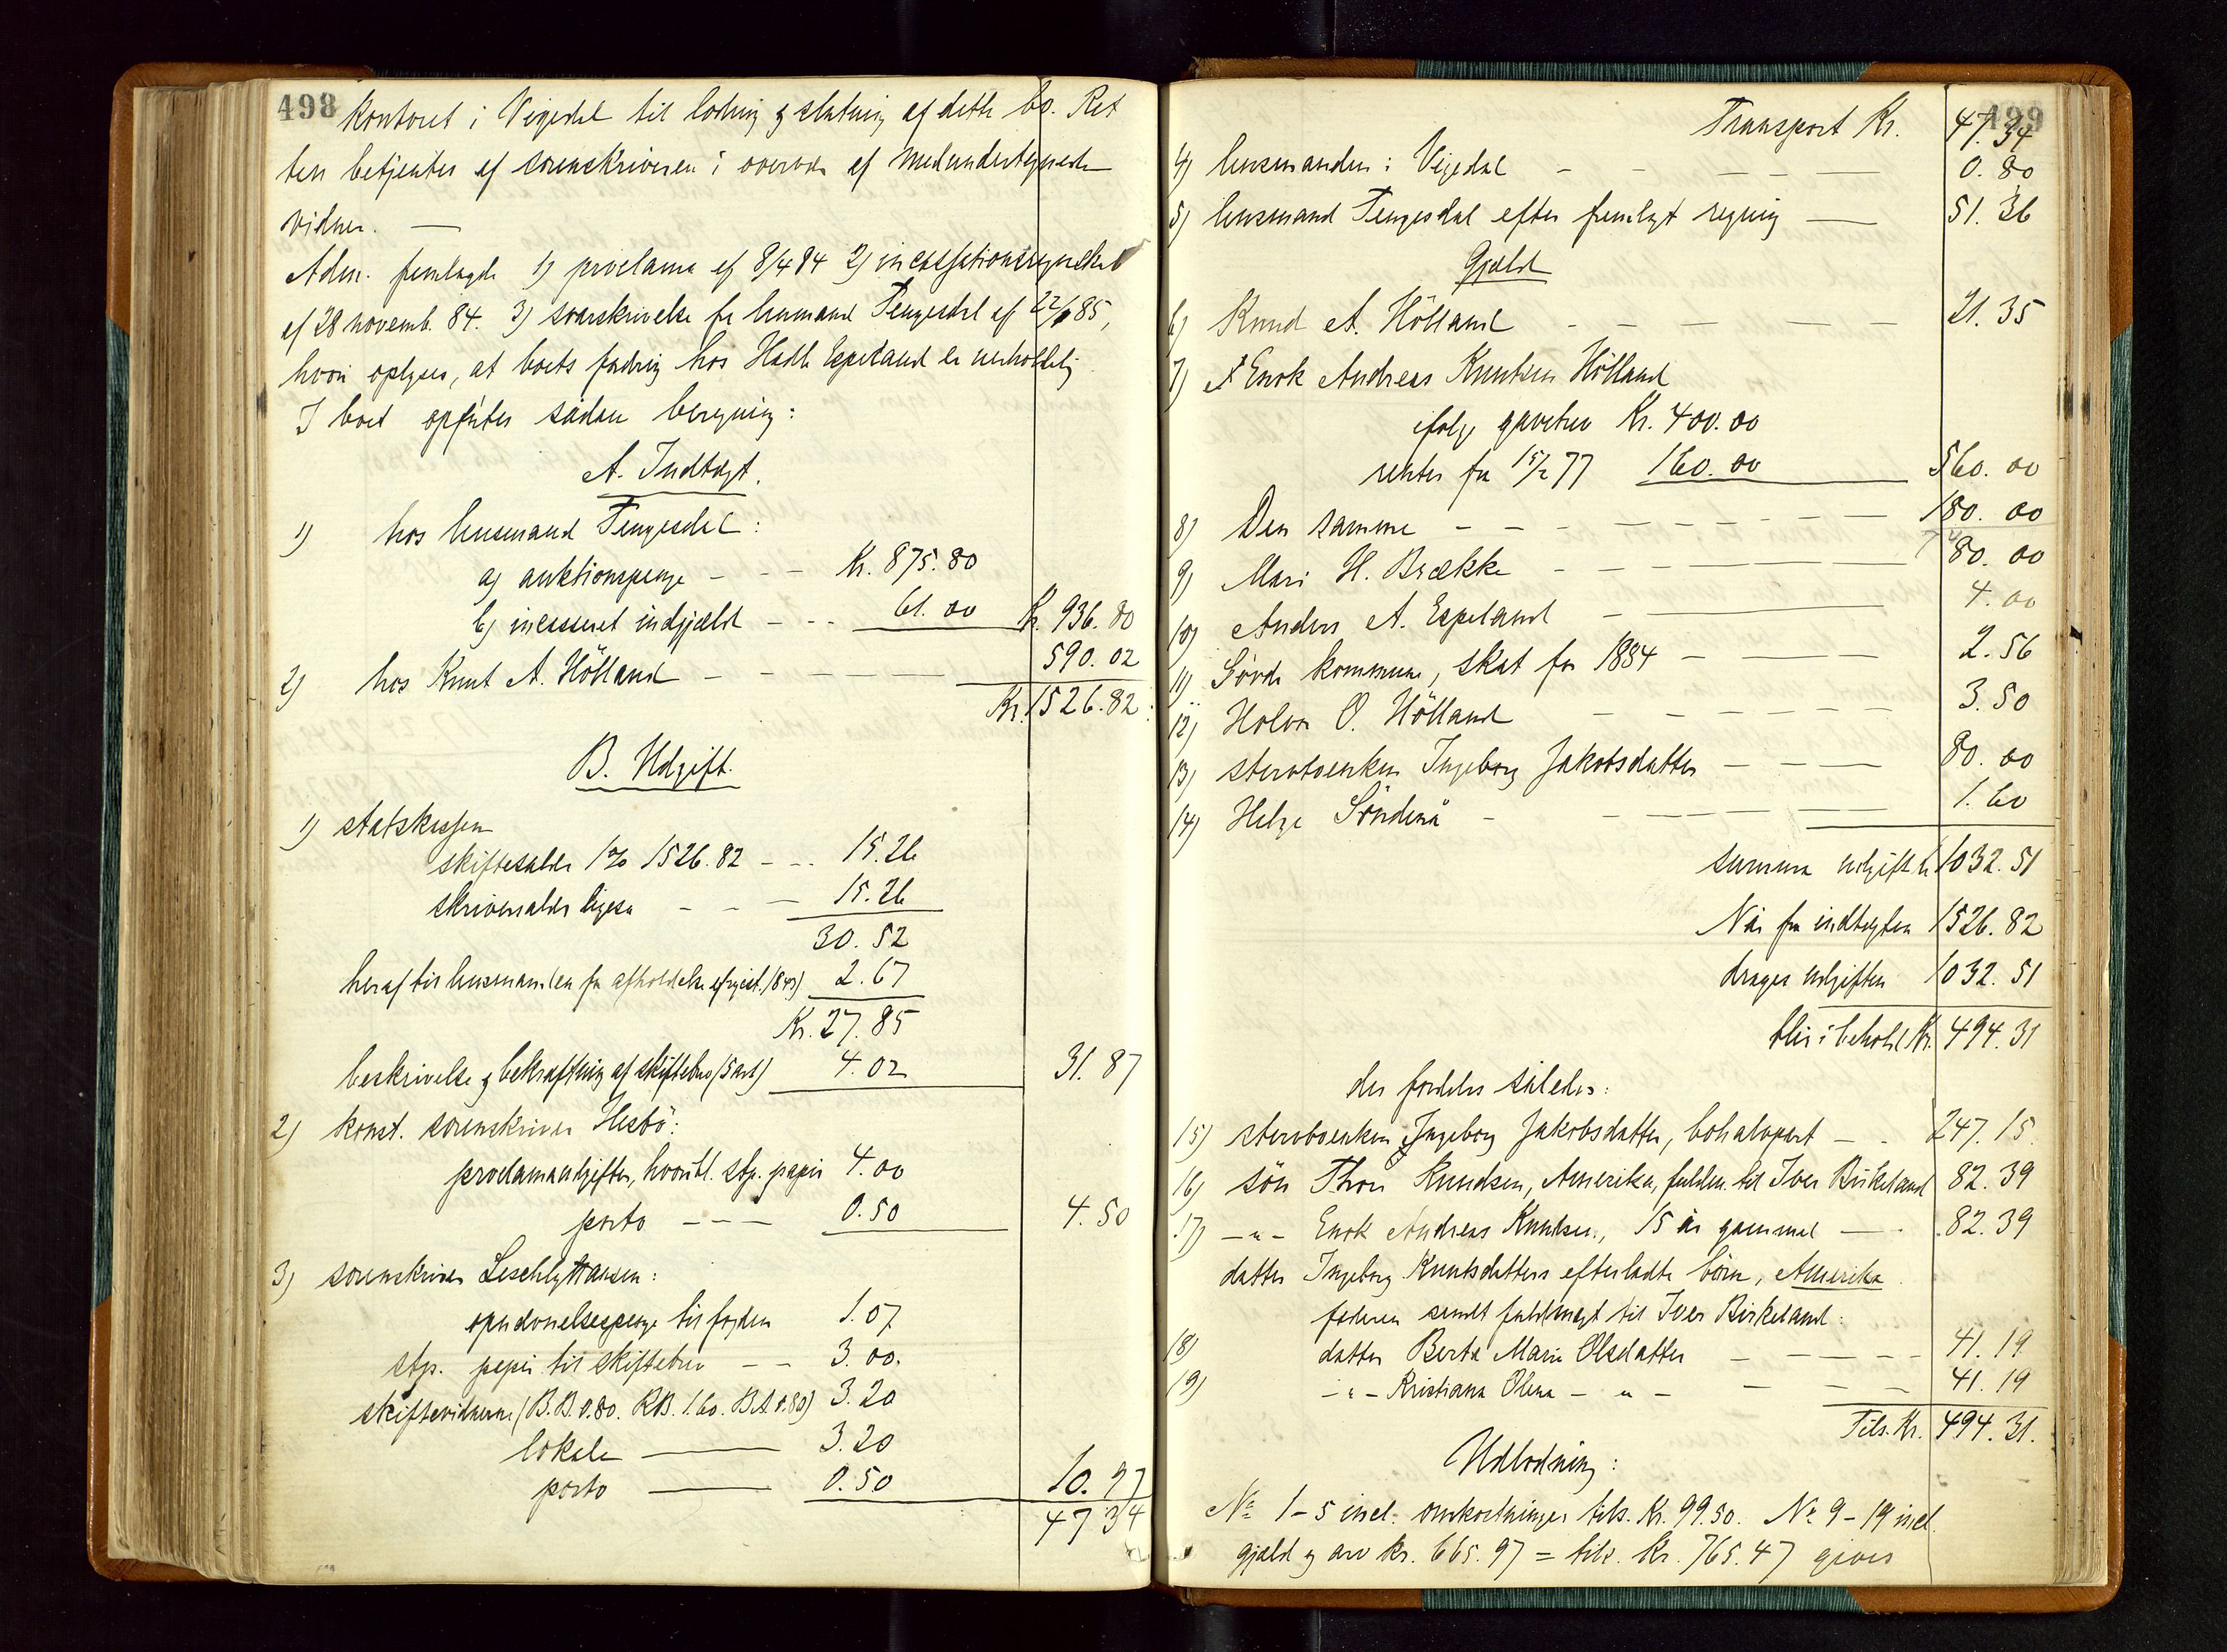 498
kontoret i Vigedal til lodning og slutning af dette bo. Ret
ten betjentes af sorenskriveren i overvær af medundertegnede
vidner. —
Adm. fremlagde 1) proclama af 8/4 84 2) incassationsregnskab
af 28 novemb. 84. 3) svarskrivelse fra lensmand Tengesdal af 22/6 85,
hvori oplyses, at boets fordring hos Espeland er uerholdelig.
I boet opførtes sådan beregning:
A. Indtægt.
1) hos lensmand Tengesdal:
a) auktionspenge - - - Kr. 875.80
b) incasseret indgjæld - - - 61.00 Kr. 936.80
2) hos Knut A. Hölland - - - - - 590.02
Kr. 1526.82
B. Udgift.
1) statskassen
skiftesalær 1% 1526.82 - - - 15.26
skriversalær ligeså - - - 15.26
30.52
heraf til lensmanden for afholdelse af regist. 2.67
Kr. 27.85
beskrivelse og bekræftning af skiftebrev (5 ark) 4.02 31.87
2) konst. sorenskriver Hesbö:
proclamaudgifter, hvoribl. stp. papir 4.00
porto - - - 0.50 4.50
3) sorenskriver
til fogden 1.07
stp. papir til skiftebrev - - 3.00.
skiftevidnerne (B.B. 0.80. K.B. 1.60. B.A. 0.80) 3.20
lokale — 3.20
porto — 0.50 10.97
47 34
499
Transport Kr. 47.34
4) lensmanden i Vigedal - - - - 0.80
5) lensmand Tengesdal efter fremlagt regning — 51.36
Gjæld
6) Knud A. Hölland - - - - - 21.35
7) Enok Andreas Knutsen Hölland
ifølge gavebrev Kr. 400.00
renter fra 15/2 77 160.00 560.00
8) Den samme - - - - - - - 180.00
9) Mari H. Brække - - - - - 80.00
10) Anders A. Espeland - — 4.00
11) Sövde kommune, skat for 1884 - — - 2.56
12) Holver O. Hölland - - - - - 3.50
13) stervboenken Ingeborg Jakobsdatter - - - — 80.00
14) Helge Söndenå - - - - - 1.60
summa udgift kr 1032.51
Når fra indtægten 1526.82
drages udgiften 1032.51
blir i behold Kr. 494.31
der fordeles således:
15) stervboenken Ingeborg Jakobsdatter, bohalvpart — - 247.15
16) sön Thore Knudsen, Amerika, fuldm. til Iver Birkeland 82.39
17) - " - Enok Andreas Knutsen, 15 år gammel — - 82.39
datter Ingeborg Knutsdatters efterladte börn, Amerika
faderen sendt fuldmagt til Iver Birkeland:
18) datter Berta Marie Olsdatter - - - - - 41.19
19) - " - Kristiana Olena - " - - - - 41.19
Tils. Kr. 494.31.
Udlodning:
No 1 - 5 incl. omkostninger tils. Kr. 99.50. No 9 - 19 incl.
gjæld og arv kr. 665.97 = tils. kr. 765.47 gives